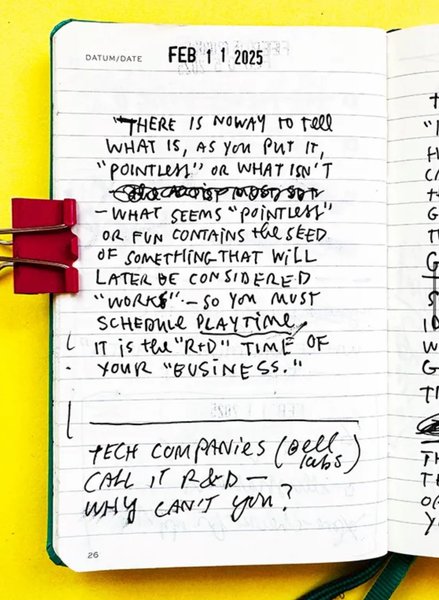 DATUM/DATE FEB 11 2025
"THERE IS NOWAY TO tell
WHAT IS, AS YOU PUT IT,
"POINTLESS" OR WHAT ISN'T
— WHAT SEEMS "POINTLESS"
OR FUN CONTAINS the SEED
OF SOMETHING THAT WILL
LATER BE CONSIDERED
"WORK" — SO YOU MUST
SCHEDULE PLAYTIME
IT IS the "R+D" TIME OF
YOUR "BUSINESS."
TECH COMPANIES (Bell
labs)
CALL IT R&D —
WHY CAN'T YOU?
26